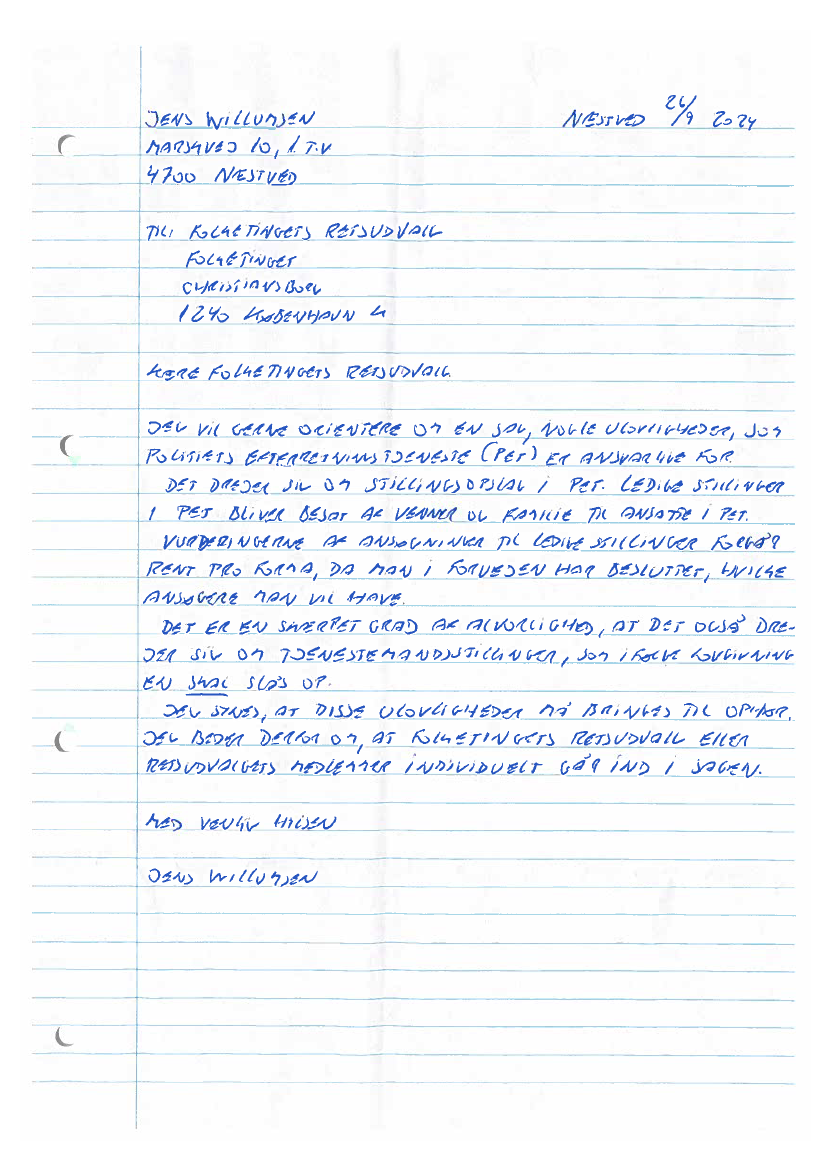 JENS WILLUMSEN
NÆSTVED 26/9 2024
MARSKVEJ 10, 1. T.V
4700 NÆSTVED
TIL: FOLKETINGETS RETSUDVALG
FOLKETINGET
CHRISTIANSBORG
1240 KØBENHAVN K
KÆRE FOLKETINGETS RETSUDVALG.
JEG VIL GERNE ORIENTERE OM EN SAG, NOGLE ULOVLIGHEDER, SOM
POLITIETS EFTERRETNINGSTJENESTE (PET) ER ANSVARLIGE FOR.
DET DREJER SIG OM STILLINGSOPSLAG I PET. LEDIGE STILLINGER
I PET BLIVER BESAT AF VENNER OG FAMILIE TIL ANSATTE I PET.
VURDERINGERNE AF ANSØGNINGER TIL LEDIGE STILLINGER FOREGÅR
RENT PRO FORMA, DA MAN I FORVEJEN HAR BESLUTTET, HVILKE
ANSØGERE MAN VIL HAVE.
DET ER EN SKÆRPET GRAD AF ALVORLIGHED, AT DET OGSÅ DRE-
JER SIG OM TJENESTEMANDSSTILLINGER, SOM IFØLGE LOVGIVNING
EN SKAL SLÅS OP.
JEG SYNES, AT DISSE ULOVLIGHEDER MÅ BRINGES TIL OPHØR.
JEG BEDER DERFOR OM, AT FOLKETINGETS RETSUDVALG ELLER
RETSUDVALGETS MEDLEMMER INDIVIDUELT GÅR IND I SAGEN.
MED VENLIG HILSEN
JENS WILLUMSEN